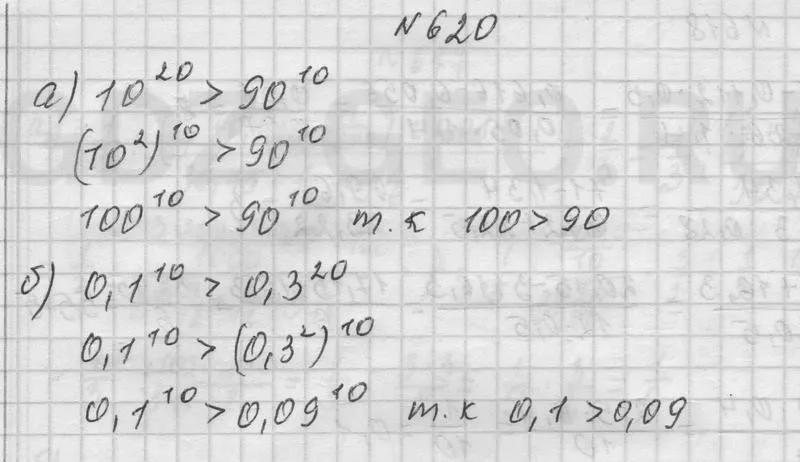 №620
а) 10²⁰ > 90¹⁰
(10²)¹⁰ > 90¹⁰
100¹⁰ > 90¹⁰ т.к 100 > 90
б) 0,1¹⁰ > 0,3²⁰
0,1¹⁰ > (0,3²)¹⁰
0,1¹⁰ > 0,09¹⁰ т.к 0,1 > 0,09